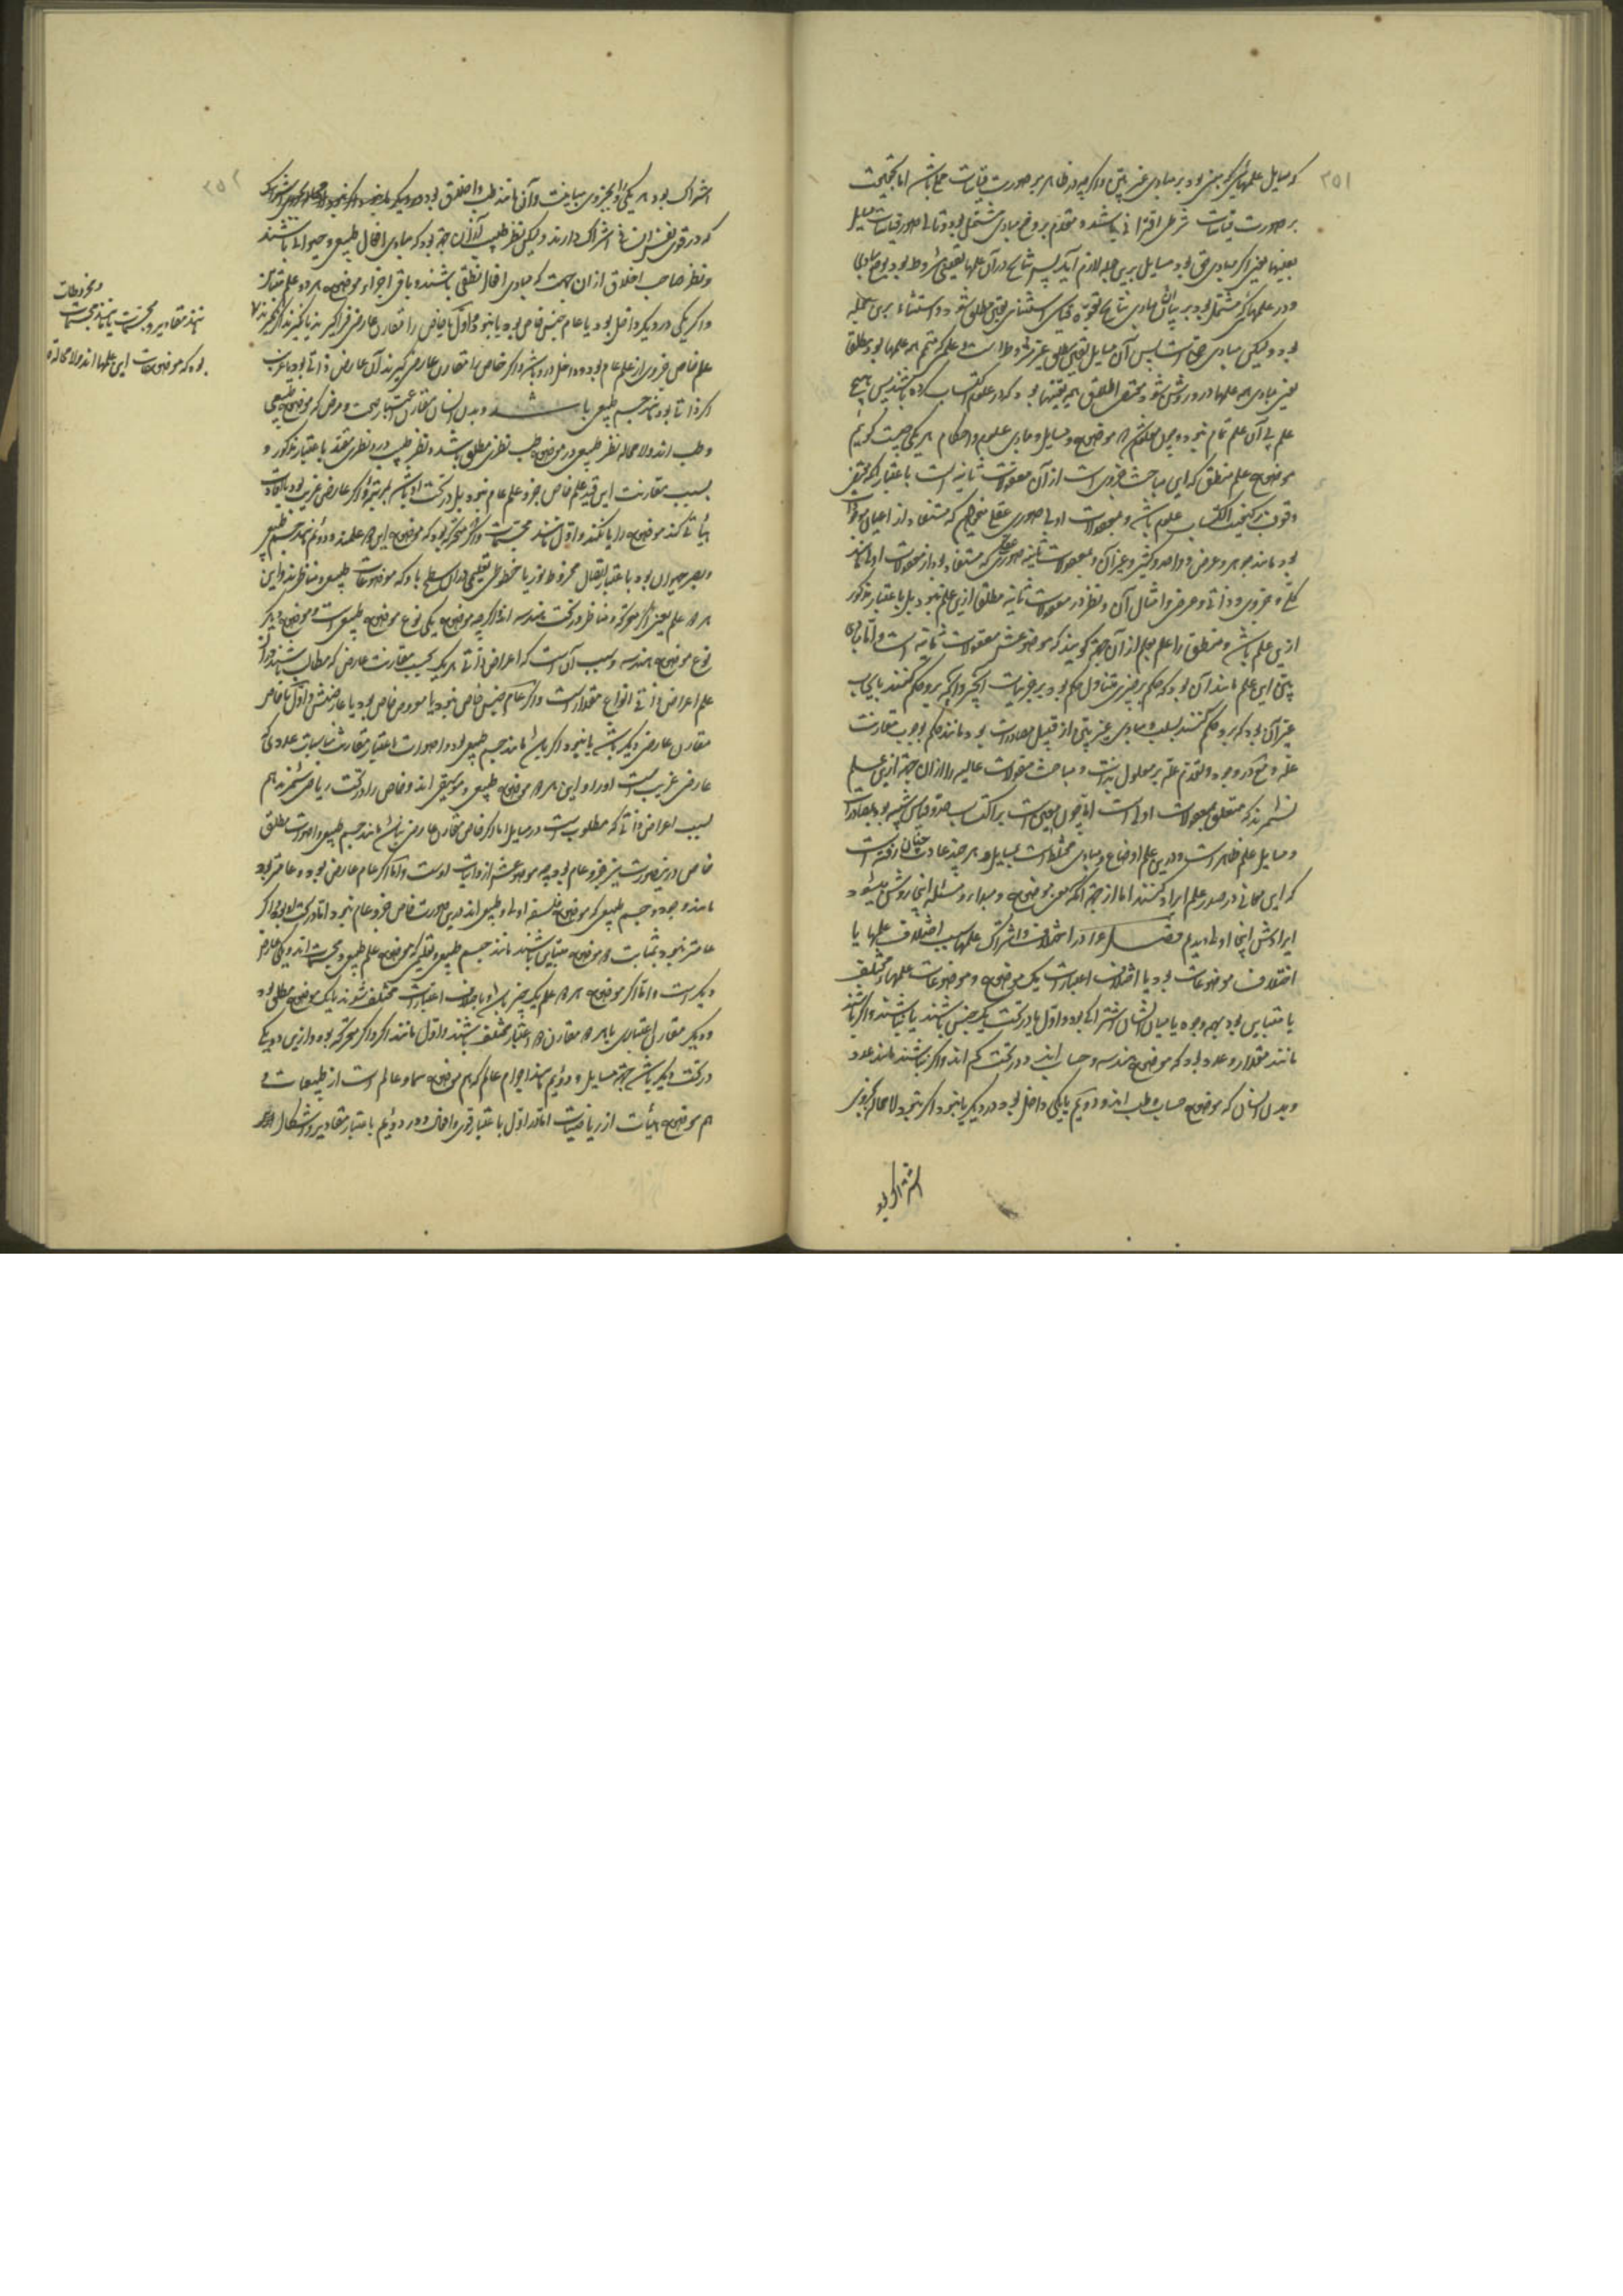 ۳۵۱
که مسایل علمهائیکه مبنی بود بر مبادی غیر بین و اگرچه در ظاهر بر صورت قیاسات حملی باشد اما بحقیقت
بر صورت قیاسات شرطی اقترانی باشد و مقدم بر وضع مبادی مشتمل بود و تالی صورت قیاسات مسایل
یعنی اگر مبادی حق بود مسایل برین جمله لازم آید پس نتایج در آن علمها یقینی مشروط بود بوضع مبادی
و در علمهائی که مشتمل بود بر بیان آن مبادی نتایج بقوة قیاس استثنائی یقینی مطلق شود و استثناء برین جمله
بود ولیکن مبادی حق است پس آن مسایل یقینی مطلق غیر مشروط است و علمی که متمم همه علمها بود مطلق
یعنی مبادی همه علمها درو روشن شود
علم بی آن علم تمام نبود و چون معلوم شد که موضوع و مسایل و مبادی علوم و احکام هر یکی چیست گوئیم
موضوع علم منطق که این مباحث جزوی است از آن معقولات ثانیه است باعتبار آنکه مقتضی
وقوف بر کیفیت اکتساب علوم باشد و بمعقولات اولی صوری عقلی میخواهیم که مستفاد از اعیان موجودات
بود مانند جوهر و عرض و واحد و کثیر و غیر آن و بمعقولات ثانیه صورتی عقلی که مستفاد بود از معقولات اولی مانند
کلی و جزوی و ذاتی و عرضی و امثال آن و نظر در معقولات ثانیه مطلق ازین علم نبود بل باعتبار مذکور
ازین علم باشد و منطق را علم علم از آن جهة گویند که موضوعش معقولات ثانیه است و اما مبادی
بین این علم مانند آن بود که حکم بر چیزی متناول حکم بود بر جزئیات آنچیز و آنچه برو حکم کنند بایجاب
غیر آن بود که برو حکم کنند بسلب و مبادی غیر بین از قبیل مصادرات بود مانند حکم بوجوب مقارنت
علة و معلول در وجود و تقدم علة بر معلول بذات و مباحث مقولات عالیه را از آن جهة ازین علم
نشمرند که متعلق بمعقولات اولی است اما چون معین است بر اکتساب حدود و قیاس شبیه بود بمصادرات
و مسایل علم ظاهر است و درین علم اوضاع و مبادی مختلط است بمسایل و هر چند عادت چنان رفته است
که این معانی در صدر علم ایراد کنند اما از جهة آنکه معنی موضوع و مبداء و مسئله اینجا روشن میشود
ایرادش اینجا اولی دیدیم فصل در اختلاف و اشتراک علمها سبب اختلاف علمها یا
اختلاف موضوعات بود یا اختلاف اعتبارات یک موضوع و موضوعات علمهای مختلف
یا متباین بود بهمه وجوه یا میان ایشان اشتراکی بود و اول یا در تحت یک جنس باشند یا نباشند و اگر باشند
مانند مقدار و عدد بود که موضوع هندسه و حساب اند و در تحت کم اند و اگر نباشند مانند عدد
و بدن انسان که موضوع حساب و طب اند و دویم یا یکی داخل بود در دیگر یا نبود و اگر نبود لامحاله بجزوی
اشتراک بود
۳۵۲
اشتراک بود هر یکی را و بجزوی مباینت و آن مانند طب و اخلاق بود
که در قوی نفس انسانی اشتراک دارند ولیکن نظر طبیب از آن جهة بود که مبادی افعال طبیعی و حیوانی باشند
و نظر صاحب اخلاق از آن جهت که مبادی افعال نطقی باشند و باقی اجزاء موضوع هر دو علم متباین
و اگر یکی در دیگر داخل بود یا عام جنس خاص بود یا نبود و اول یا خاص را مقارن عارضی فراگیرند یا نگیرند اگر نگیرند
علم خاص جزوی از علم عام بود و داخل درو باشد و اگر خاص را مقارن عارضی گیرند آن عارض ذاتی بود یا غریب
اگر ذاتی بود مانند جسم طبیعی باشد و بدن انسان مقارن اعتبار صحت و مرض که موضوع طبیعی
و طب اند و لامحاله نظر طبیعی در موضوع طب نظری مطلق باشد و نظر طبیب درو نظری مقید باعتبار مذکور و
بسبب مقارنت این قید علم خاص جزو علم عام نبود بل در تحت او باشد بمرتبه و اگر عارض غریب بود یا افادت
هیأتی کند موضوع را یا نکند و اول مانند مجسمات و اکر متحرکه بود که موضوع این دو علمند و دوئم مانند جسم طبیعی
هر دو علم یعنی اکر متحرکه و مناظر در تحت هندسه اند اگرچه موضوع یکی نوع موضوع طبیعی است و موضوع دیگر
نوع موضوع هندسه و سبب آن است که اعراض ذاتی هر یک بحسب مقارنت عارض که مطالب باشند در آن
علم اعراض ذاتی انواع مقدار است و اگر عام جنس خاص نبود یا معروض خاص بود یا عارضش و اول یا خاص
مقارن عارضی دیگر باشد یا نبود اگر باشد مانند جسم طبیعی بود و اصوات باعتبار مقارنت مناسبات عددی که
عارض غریب است او را و این هر دو موضوع طبیعی و موسیقی اند و خاص را در تحت ریاضی شمرند هم
بسبب اعراض ذاتی که مطلوب است در مسایل اما اگر خاص مقارن عارضی نباشد مانند جسم طبیعی و اصوات مطلق
خاص درینصورت نیز جزو عام بود چه موضوعش از ذاتیات اوست و اما اگر عام عارض بود و عامتر بود
مانند وجود و جسم طبیعی که موضوع فلسفه اولی و طبیعی اند درین صورت خاص جزو عام نبود اما در تحت او بود و اگر
عامتر نبود بمثابت دو موضوع متباین باشند مانند جسم طبیعی و تعلیمی که موضوع علم طبیعی و مجسمات اند و یکی عارض
دیگر است و اما اگر موضوع هر دو علم یک چیز باشد و باختلاف اعتبارات مختلف شوند یا یک موضوع مطلق بود
و دیگر مقارن اعتباری یا هر دو مقارن دو اعتبار مختلف باشند و اول مانند اکر و اکر متحرکه بود و ازین دو یکی
در تحت دیگر باشد بجهة مسایل و دوئیم مانند اجرام عالم که هم موضوع سماء و عالم است از طبیعیات و
هم موضوع هیئات از ریاضیات اما در اول باعتبار قوی و افعال و در دوئیم باعتبار مقادیر و اشکال
و مخروطات
بود که موضوعات این علمها اند و لامحاله